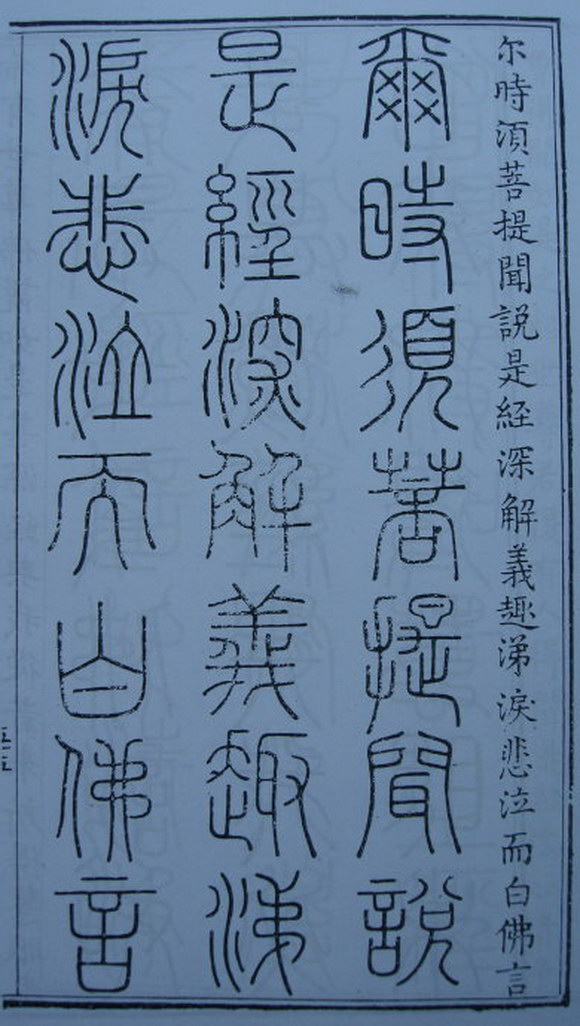 尔時須菩提聞說是経深解義趣涕淚悲泣而白佛言
爾時須菩提聞說
是經深解義趣涕
淚悲泣而白佛言
五五